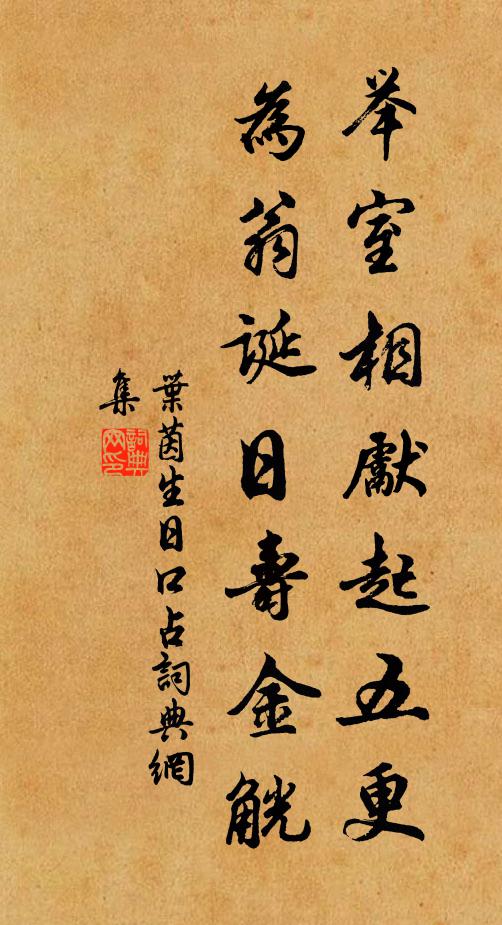 举室相獻起五更
為翁誕日壽金觥
葉茵生日口占詞典網
集
詞典
网印